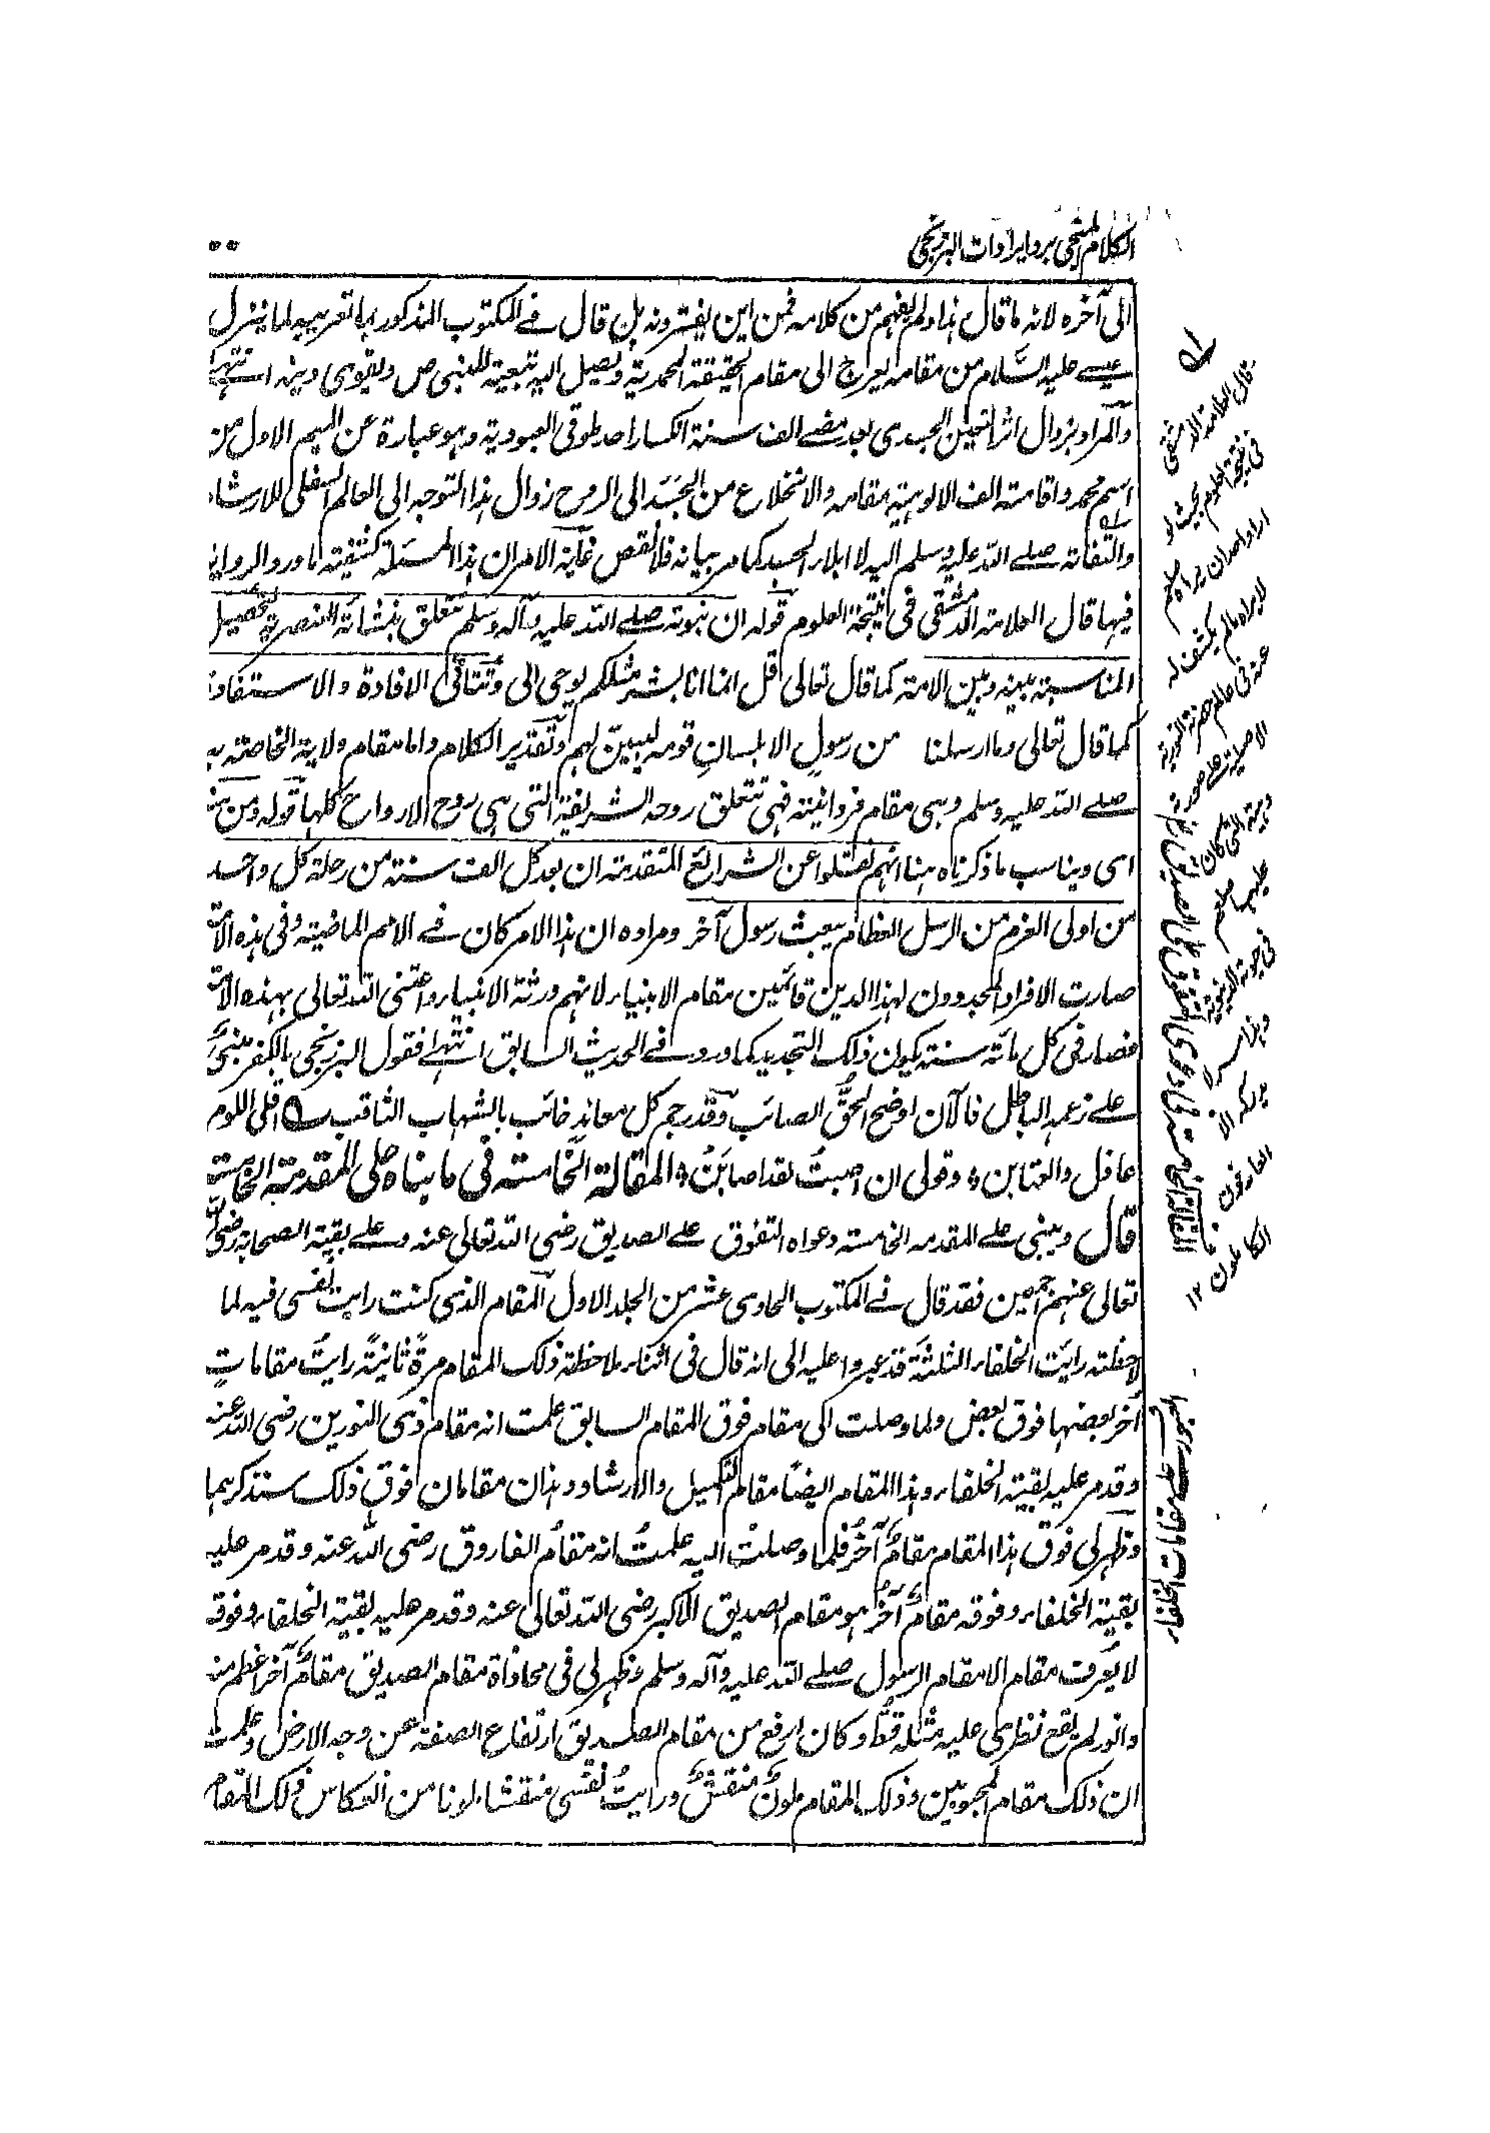 الكلام المنجي برد ايرادات البرزنجي
الى آخره لانه ما قال هذا ولم يفهم من كلامه فمن اين يفترونه بل قال في المكتوب المذكور بها تعريبه لما ينزل
عيسے عليه السَّلام من مقامه يعرج الى مقام الحقيقة المحمدية ويصل اليه بتبعية للنبي ص ويقوى دينه انتهى
والمراد بزوال اثر التعين الجسدى بعد مضے الف سنة انكسار احد طوقى العبودية وهو عبارة عن الميم الاول من
اسم محمد واقامة الف الالوهية مقامه والانخلاع من الجَسَد الى الروح زوال هذا التوجه الى العالم السفلى للارشاد
والتفاته صلے الله عليه وسلم اليه لا ابلاء الجسد كما مر بيانه فلا نقص غاية الامر ان هذا المسئلة كشفية ما ورد الرواية
فيها قال العلامة الدمشقى فى نتيجة العلوم قوله ان نبوته صلے الله عليه وآله وسلم تتعلق بنشأته العنصرية لتحصيل
المناسبة بينه وبين الامة كما قال تعالى قل انما انا بشر مثلكم يوحى الى وتتأتى الافادة والاستفادة
كما قال تعالى وما ارسلنا من رسولٍ الا بلسانِ قومه ليبيّن لهم وتقدير الكلام واما مقام ولاية الخاصة به
صلے الله عليه وسلم وهى مقام فردانيته فهى تتعلق روحه الشريفة التى هى روح الارواح كلها قوله ومن هنا
اى ويناسب ما ذكرناه هنا انهم نقلوا عن الشرائع المتقدمة ان بعد كل الف سنة من رحلة كل واحد
من اولى العزم من الرسل العظام يبعث رسول آخر ومراده ان هذا الامر كان فے الامم الماضية وفى هذه الامة
صارت الافراد المجددون لهذا الدين قائمين مقام الانبياء لانهم ورثة الانبياء واعتنى الله تعالى بهذه الامة
فصار فى كل مائة سنة يكون ذلك التجديد كما ورد فے الحديث السابق انتهے فقول البرزنجى بالكفر مبنىٌّ
علے زعمه الباطل فالآن اوضح الحقُّ الصائب وقد رجم كل معاند خائب بالشهاب الثاقب ؎ اقلى اللوم
عاذل والعتابن ؛ وقولى ان اصبتُ لقد اصابَنْ ؛ المقالة الخامسة فى ما بناه على المقدمة الخامسة
قال ويبنى علے المقدمة الخامسة دعواه التفوق علے الصديق رضى الله تعالى عنه وعلے بقية الصحابة رضى الله
تعالى عنهم اجمعين فقد قال فے المكتوب الحادى عشر من الجلد الاول المقام الذى كنت رايت نفسى فيه لما
لاحظته رايت الخلفاء الثلثة قد عبروا عليه الى انه قال فى اثناء ملاحظة ذلك المقام مرةً ثانيةً رايتُ مقاماتٍ
أخر بعضها فوق بعض ولما وصلت الى مقام فوق المقام السابق علمت انه مقام ذى النورين رضى الله عنه
وقد مر عليه بقية الخلفاء وهذا المقام ايضًا مقام التكميل والارشاد وهذان مقامان فوق ذلك سنذكرهما
وظهر لى فوق هذا المقام مقامٌ آخرُ فلما وصلتُ اليه علمتُ انه مقام الفاروق رضى الله عنه وقد مر عليه
بقية الخلفاء وفوقه مقامٌ آخرُ هو مقام الصديق الاكبر رضى الله تعالى عنه وقد مر عليه بقية الخلفاء وفوقه
لا يُعرف مقام الا مقام الرسول صلے الله عليه وآله وسلم وظهر لى فى محاذاة مقام الصديق مقامٌ آخر اعظم منه
وانور لم يقع نظرى عليه مثله قط وكان ارفع من مقام الصديق ارتفاع الصفة عن وجه الارض وعلمت
ان ذلك مقام المحبوبين وذلك المقام ملونٌ منقشٌ ورايتُ نفسى منقشا ملونا من انعكاس ذلك المقام
قال العلامة الدمشقى
فى نتيجة العلوم بحيث لو
اراد احد ان يراه صلعم
لا يراه ما لم يكشف له
عنه فى عالم
صلعم
فى حياته الدنيوية
وهذا سر لا
يدركه الا
العارفون
الكاملون ١٢
المقالة الخامسة فى دعوى التفوق على الصديق